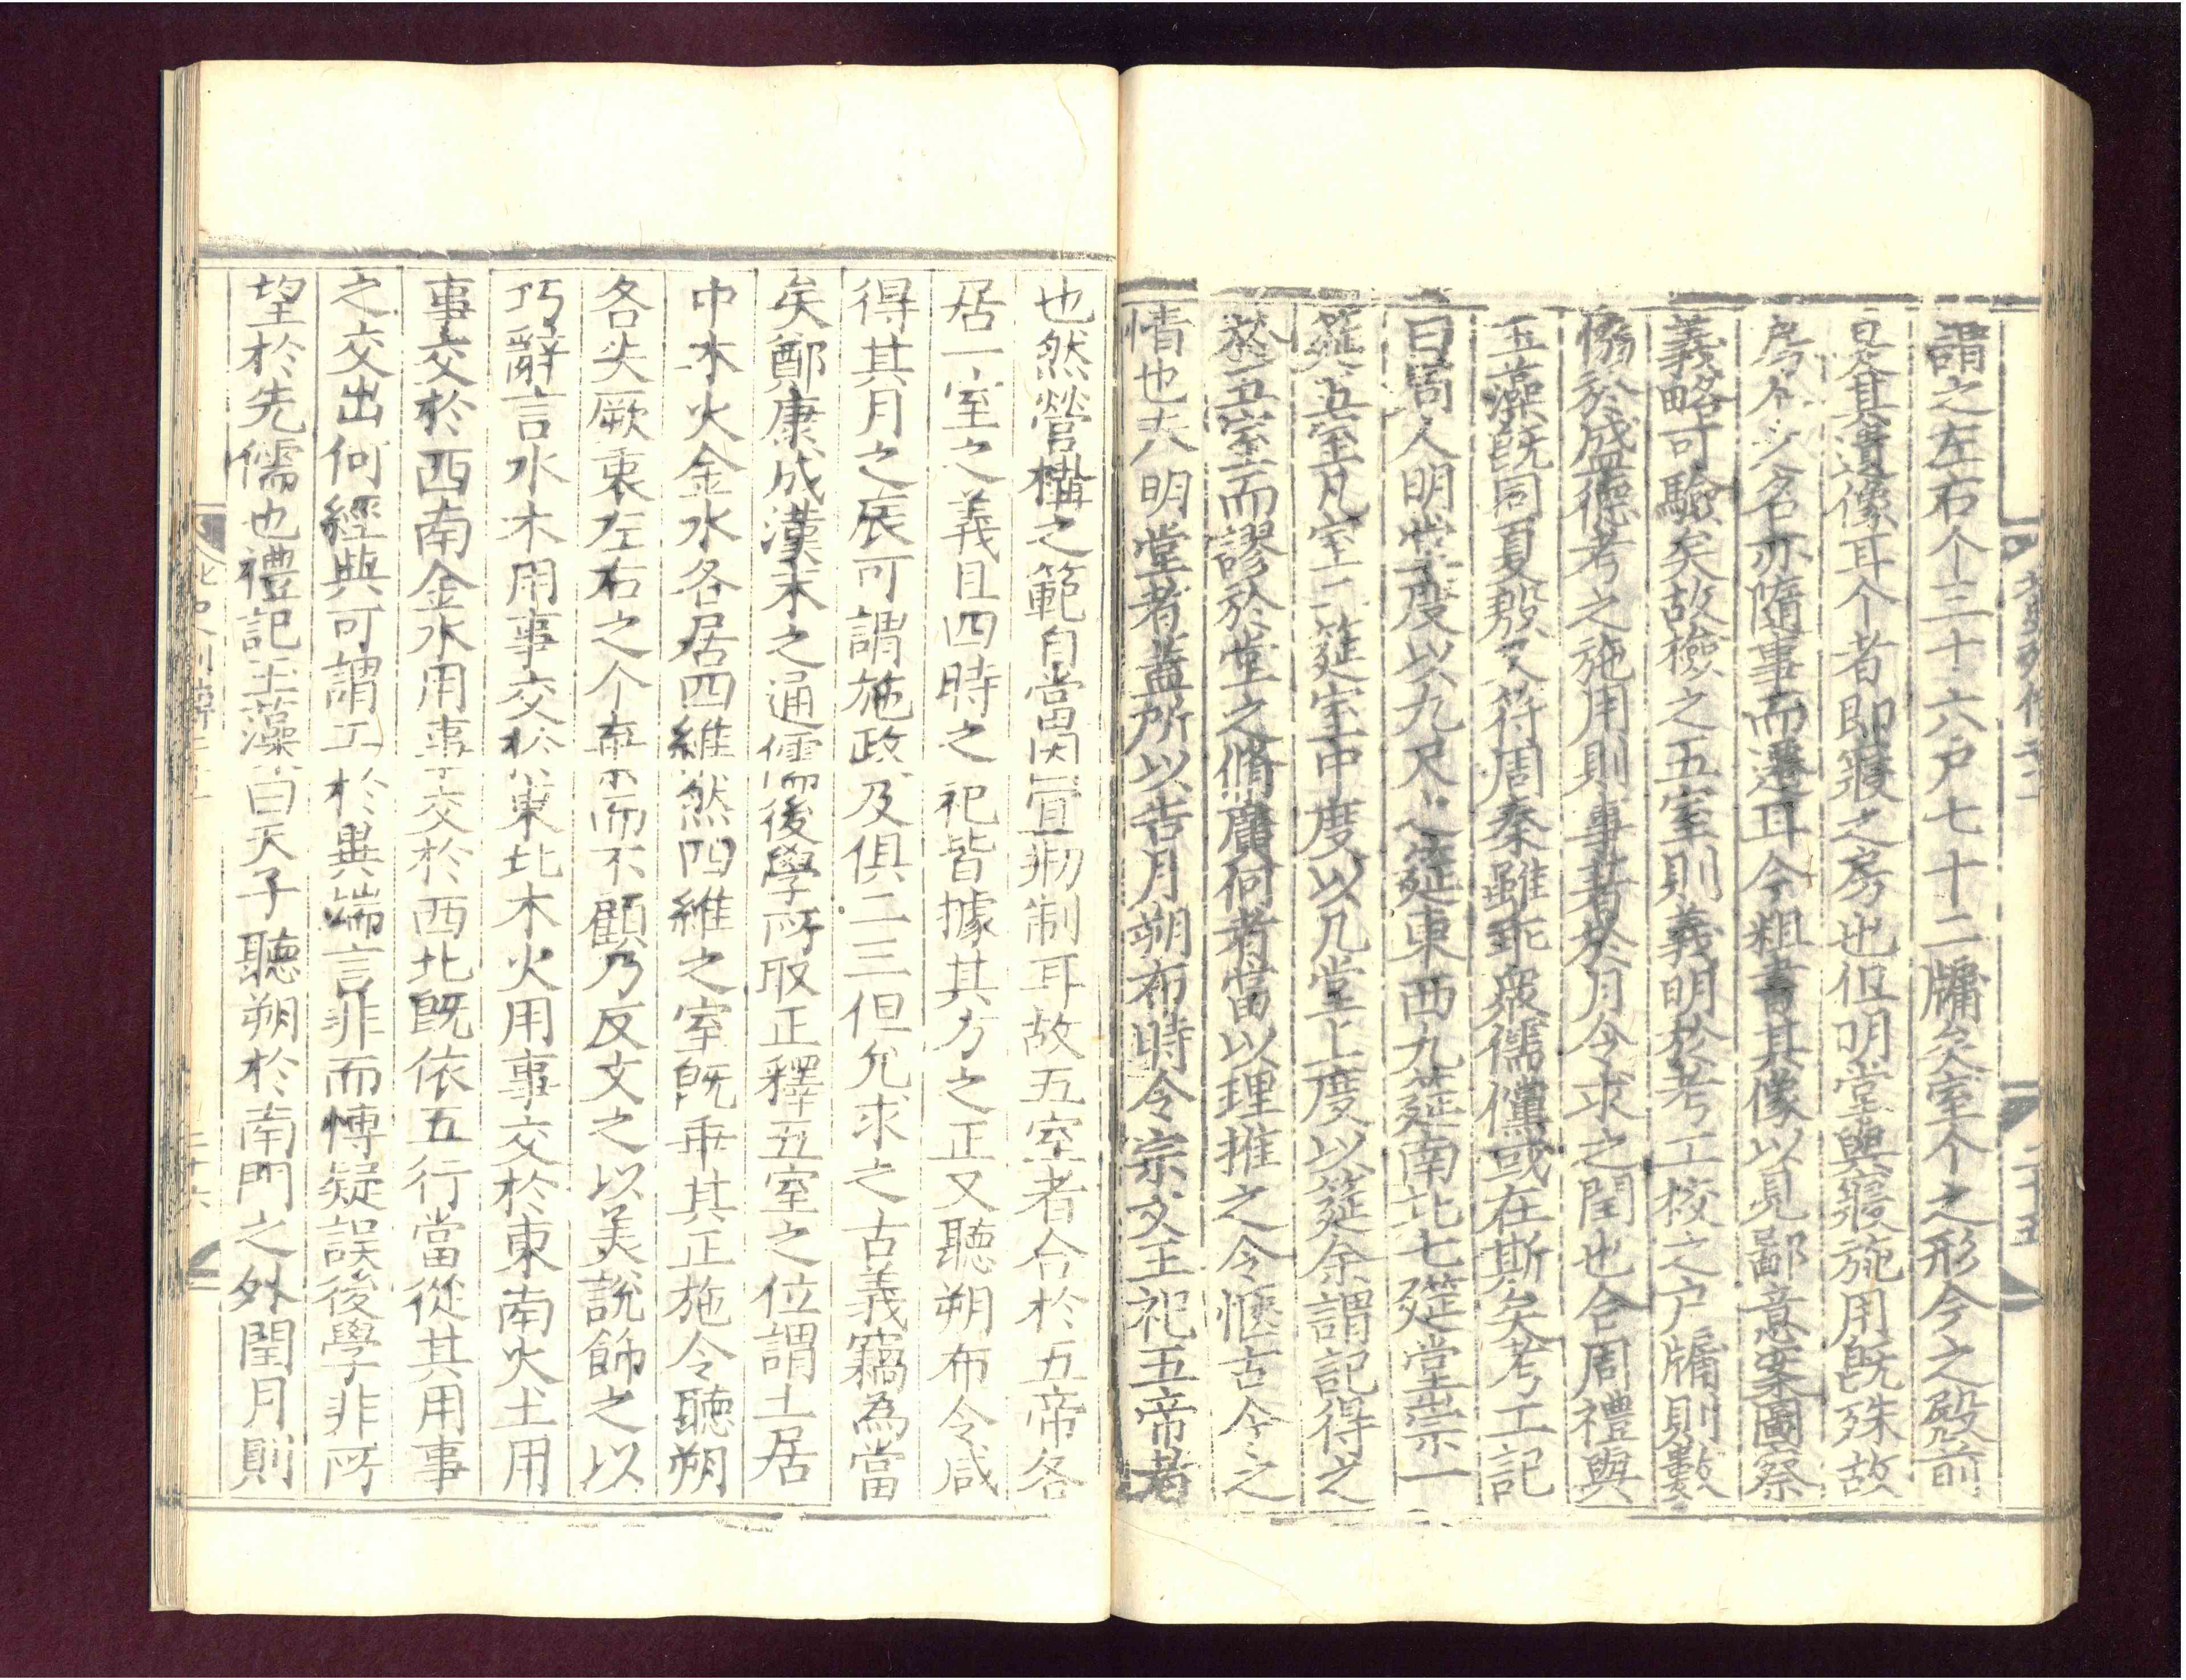 謂之左右个三十六戶七十二牖矣室个之形今之殿前
是其遺像耳个者即寢之房也但明堂與寢施用旣殊故
房个之名亦隨事而遷耳今粗書其像以見鄙意案圖察
義略可驗矣故檢之五室則義明於考工校之戶牖則數
恊於盛德考之施用則事著於月令求之閏也合周禮與
玉藻旣同夏殷又符周秦雖乖衆儒儻或在斯矣考工記
曰周人明堂度以九尺之筵東西九筵南北七筵堂崇一
筵五室凡室二筵室中度以几堂上度以筵余謂記得之
於五室而謬於堂之脩廣何者當以理推之令愜古今之
情也夫明堂者蓋所以告月朔布時令宗文王祀五帝者
也然營構之範自當因宜刱制耳故五室者合於五帝各
居一室之義且四時之祀皆據其方之正又聽朔布令咸
得其月之辰可謂施政及俱二三但允求之古義竊為當
矣鄭康成漢末之通儒後學所取正釋五室之位謂土居
中木火金水各居四維然四維之室旣乖其正施令聽朔
各失厥衷左右之个棄而不顧乃反文之以美說飾之以
巧辭言水木用事交於東北木火用事交於東南火土用
事交於西南金水用事交於西北旣依五行當從其用事
之交出何經典可謂工於異端言非而慱疑誤後學非所
望於先儒也禮記玉藻曰天子聽朔於南門之外閏月則